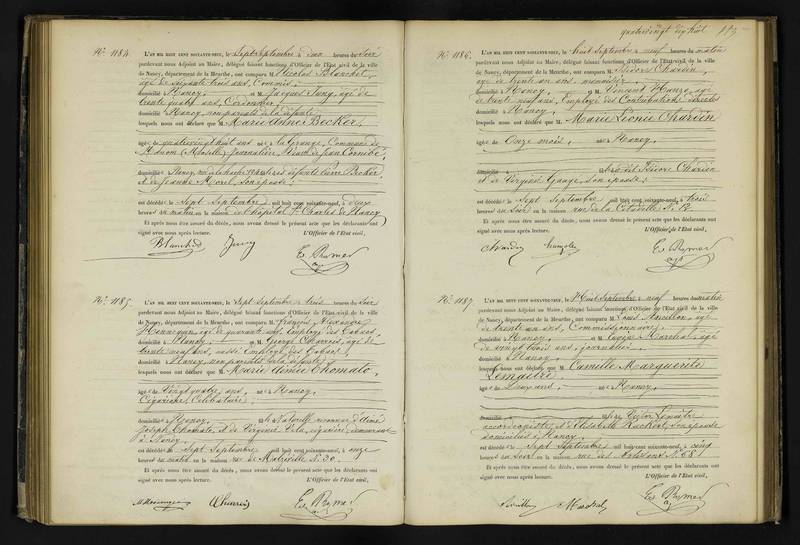 No. 1184. L'AN MIL HUIT CENT SOIXANTE-NEUF, le Sept Septembre à deux heures du Soir
pardevant nous Adjoint au Maire, délégué faisant fonctions d'Officier de l'Etat civil de la ville
de Nancy, département de la Meurthe, ont comparu M. Nicolas Blanchet,
âgé de soixante trois ans, Commis,
domicilié à Nancy, et M. Jacques Juny, âgé de
trente quatre ans, Cordonnier,
domicilié à Nancy, non parents de la défunte
lesquels nous ont déclaré que M. Marie Anne Becker
âgée de quatrevingt huit ans née à la Grange, Commune de
(Moselle) Journalière, de Jean
domiciliée à Nancy, Becker
et de Jeanne Morel, son épouse,
est décédée le Sept Septembre mil huit cent soixante-neuf, à deux
heures du matin en la maison de l'hôpital St Charles de Nancy
Et après nous être assuré du décès, nous avons dressé le présent acte que les déclarants ont
signé avec nous après lecture. L'Officier de l'Etat civil,
Blanchet Juny
No. 1185. L'AN MIL HUIT CENT SOIXANTE-NEUF, le Sept Septembre à trois heures du Soir
pardevant nous Adjoint au Maire, délégué faisant fonctions d'Officier de l'Etat civil de la ville
de Nancy, département de la Meurthe, ont comparu M. François Alexandre
âgé de quarante ans, Employé des Tabacs
domicilié à Nancy, et M. George Charrois, âgé de
trente neuf ans, aussi Employé des Tabacs,
domicilié à Nancy, non parents de la défunte
lesquels nous ont déclaré que M. Marie Aimée Thomato,
âgée de Vingt quatre ans, née à Nancy,
Cigarière, Célibataire,
domiciliée à Nancy, fille naturelle reconnue d'Aimé
Joseph Thomato, et de Virginie cigarière, demeurant
à Nancy,
est décédée le Sept Septembre mil huit cent soixante-neuf, à onze
heures du matin en la maison rue de Malzéville No. 30.
Et après nous être assuré du décès, nous avons dressé le présent acte que les déclarants ont
signé avec nous après lecture. L'Officier de l'Etat civil,
quatrevingt dix huit
No. 1186. L'AN MIL HUIT CENT SOIXANTE-NEUF, le huit Septembre à neuf heures du matin
pardevant nous Adjoint au Maire, délégué faisant fonctions d'Officier de l'Etat civil de la ville
de Nancy, département de la Meurthe, ont comparu M. Isidore Chardin,
âgé de trente un ans, menuisier,
domicilié à Nancy, et M. Vincent âgé
de trente neuf ans, Employé des Contributions directes
domicilié à Nancy,
lesquels nous ont déclaré que M. Marie Léonie Chardin
âgée de Onze mois, née à Nancy,
domiciliée fille de Isidore Chardin
et de Virginie son épouse,
est décédée le Sept Septembre mil huit cent soixante-neuf, à trois
heures du Soir en la maison rue de la Citadelle No. 12
Et après nous être assuré du décès, nous avons dressé le présent acte que les déclarants ont
signé avec nous après lecture. L'Officier de l'Etat civil,
Chardin
No. 1187. L'AN MIL HUIT CENT SOIXANTE-NEUF, le huit Septembre à neuf heures du matin
pardevant nous Adjoint au Maire, délégué faisant fonctions d'Officier de l'Etat civil de la ville
de Nancy, département de la Meurthe, ont comparu M. Louis âgé
de trente un ans, Commissionnaire,
domicilié à Nancy, et M. Eugène Maréchal, âgé
de vingt trois ans, journalier
domicilié à Nancy,
lesquels nous ont déclaré que Camille Marguerite
Lemaître
âgée de Deux ans, née à Nancy,
domiciliée fille de Victor Lemaître
et d'Elisabeth son épouse
domiciliés à Nancy,
est décédée le Sept Septembre mil huit cent soixante-neuf, à onze
heures du Soir en la maison rue des Artisans No. 68
Et après nous être assuré du décès, nous avons dressé le présent acte que les déclarants ont
signé avec nous après lecture. L'Officier de l'Etat civil,